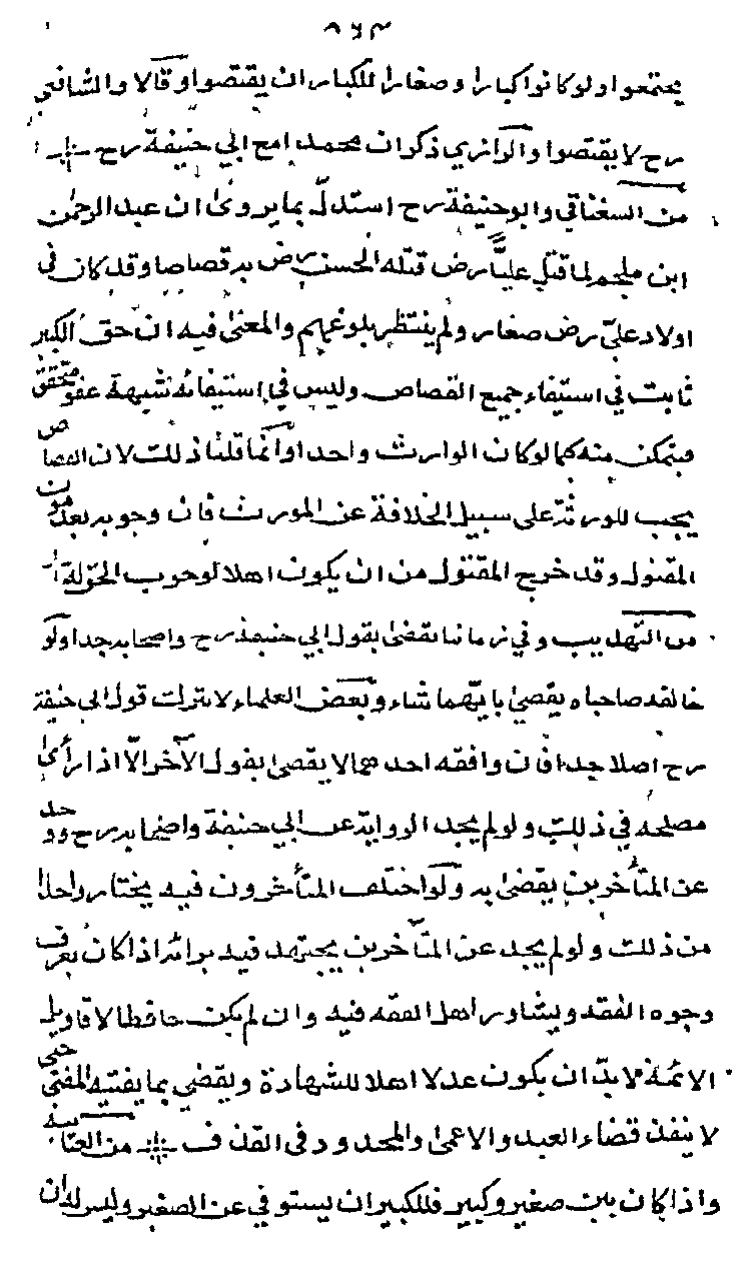 ٥٦٣
يجتمعوا ولو كانوا كبارا وصغارا للكبار ان يقتصوا وقالا والشافعي
رح لا يقتصوا والرازي ذكر ان محمدا مع ابي حنيفة رح
من السغناقي وابو حنيفة رح استدل بما يروى ان عبد الرحمن
ابن ملجم لما قتل عليّا رض قتله الحسن رض به قصاصا وقد كان في
اولاد عليّ رض صغار ولم ينتظر بلوغهم والمعنى فيه ان حق الكبير
ثابت في استيفاء جميع القصاص وليس في استيفائه شبهة عفو متحقق
فيتمكن منه كما لو كان الوارث واحدا وانما قلنا ذلك لان القصاص
يجب للورثة على سبيل الخلافة عن المورث فان وجوبه بعد موت
المقتول وقد خرج المقتول من ان يكون اهلا لوجوب الحق له
من التهذيب وفي زماننا يقضى بقول ابي حنيفة رح واصحابه جدا ولو
خالفه صاحباه يقضي بايّهما شاء وبعض العلماء لا يترك قول ابي حنيفة
رح اصلا جدا فان وافقه احدهما لا يقضي بقول الآخر الّا اذا رأى
مصلحة في ذلك ولو لم يجد الرواية عن ابي حنيفة واصحابه رح ووجد
عن المتأخرين يقضى به ولو اختلف المتأخرون فيه يختار واحدا
من ذلك ولو لم يجد عن المتأخرين يجتهد فيه برائه اذا كان يعرف
وجوه الفقه ويشاور اهل الفقه فيه وان لم يكن حافظا لاقاويل
الائمة لا بدّ ان يكون عدلا اهلا للشهادة ويقضي بما يفتيه المفتي حتى
لا ينفذ قضاء العبد والاعمى والمحدود في القذف من العتابية
واذا كان بين صغير وكبير فللكبير ان يستوفي عن الصغير وليس له ان